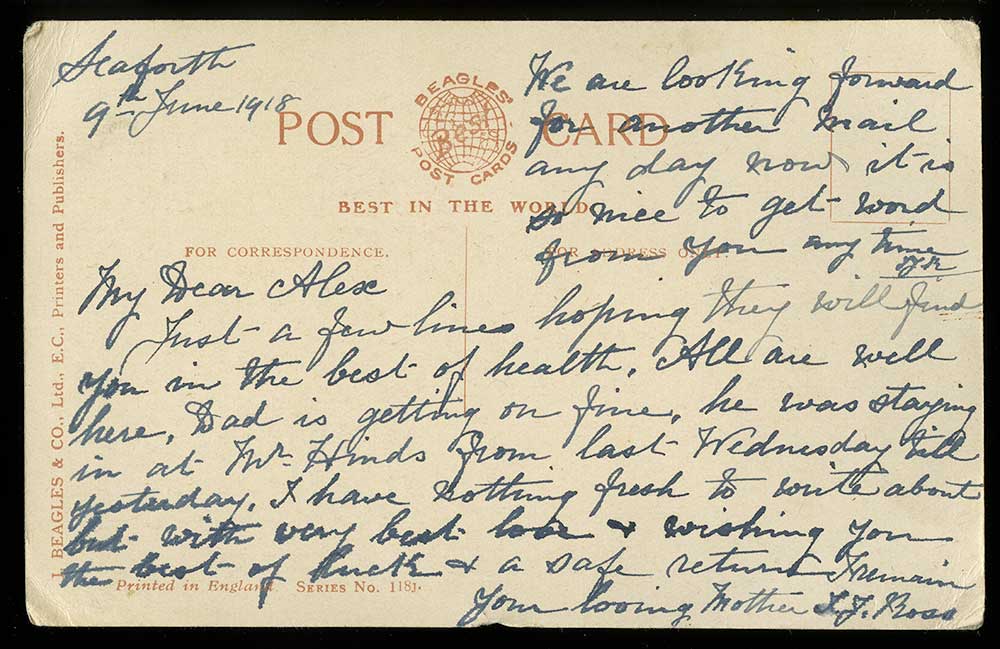 Seaforth
9th June 1918
POST CARD
BEAGLES'
Best
POST CARDS
BEST IN THE WORLD
FOR CORRESPONDENCE.
FOR ADDRESS ONLY.
My Dear Alex
Just a few lines hoping they will find
you in the best of health, All are well
here, Dad is getting on fine, he was staying
in at Mr. Hinds from last Wednesday till
yesterday, I have nothing fresh to write about
but with very best love & wishing you
the best of luck & a safe return I remain
Your loving Mother J. Ross
We are looking forward
for another mail
any day now it is
so nice to get word
from you any time
Printed in England. SERIES No. 118J.
J. BEAGLES & CO., Ltd., E.C., Printers and Publishers.